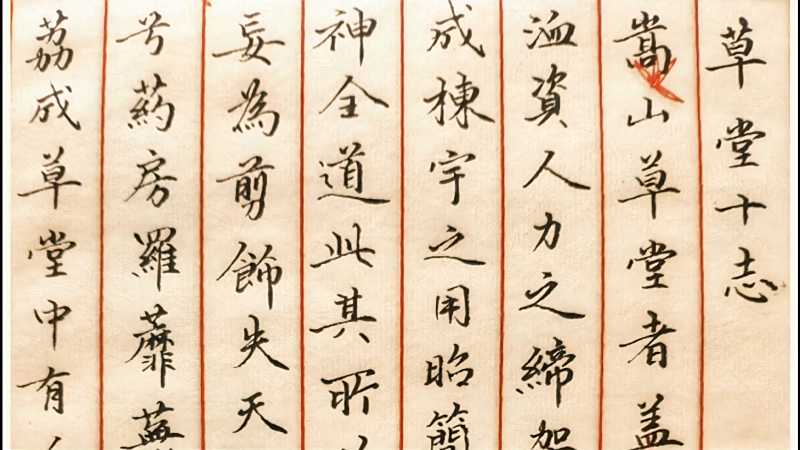 草堂十志
嵩山草堂者盖
洫資人力之締架
成棟宇之用昭簡
神全道此其所以
妄為剪飾失天
号葯房羅蘼蕪
荔成草堂中有人